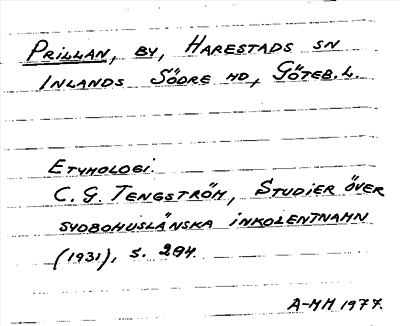 PRILLAN, BY, HARESTADS SN
INLANDS SÖDRE HD, GÖTEB. L.
ETYMOLOGI.
C. G. TENGSTRÖM, STUDIER ÖVER
SYDBOHUSLÄNSKA INKOLENTNAMN
(1931), S. 284.
A-MM 1977.